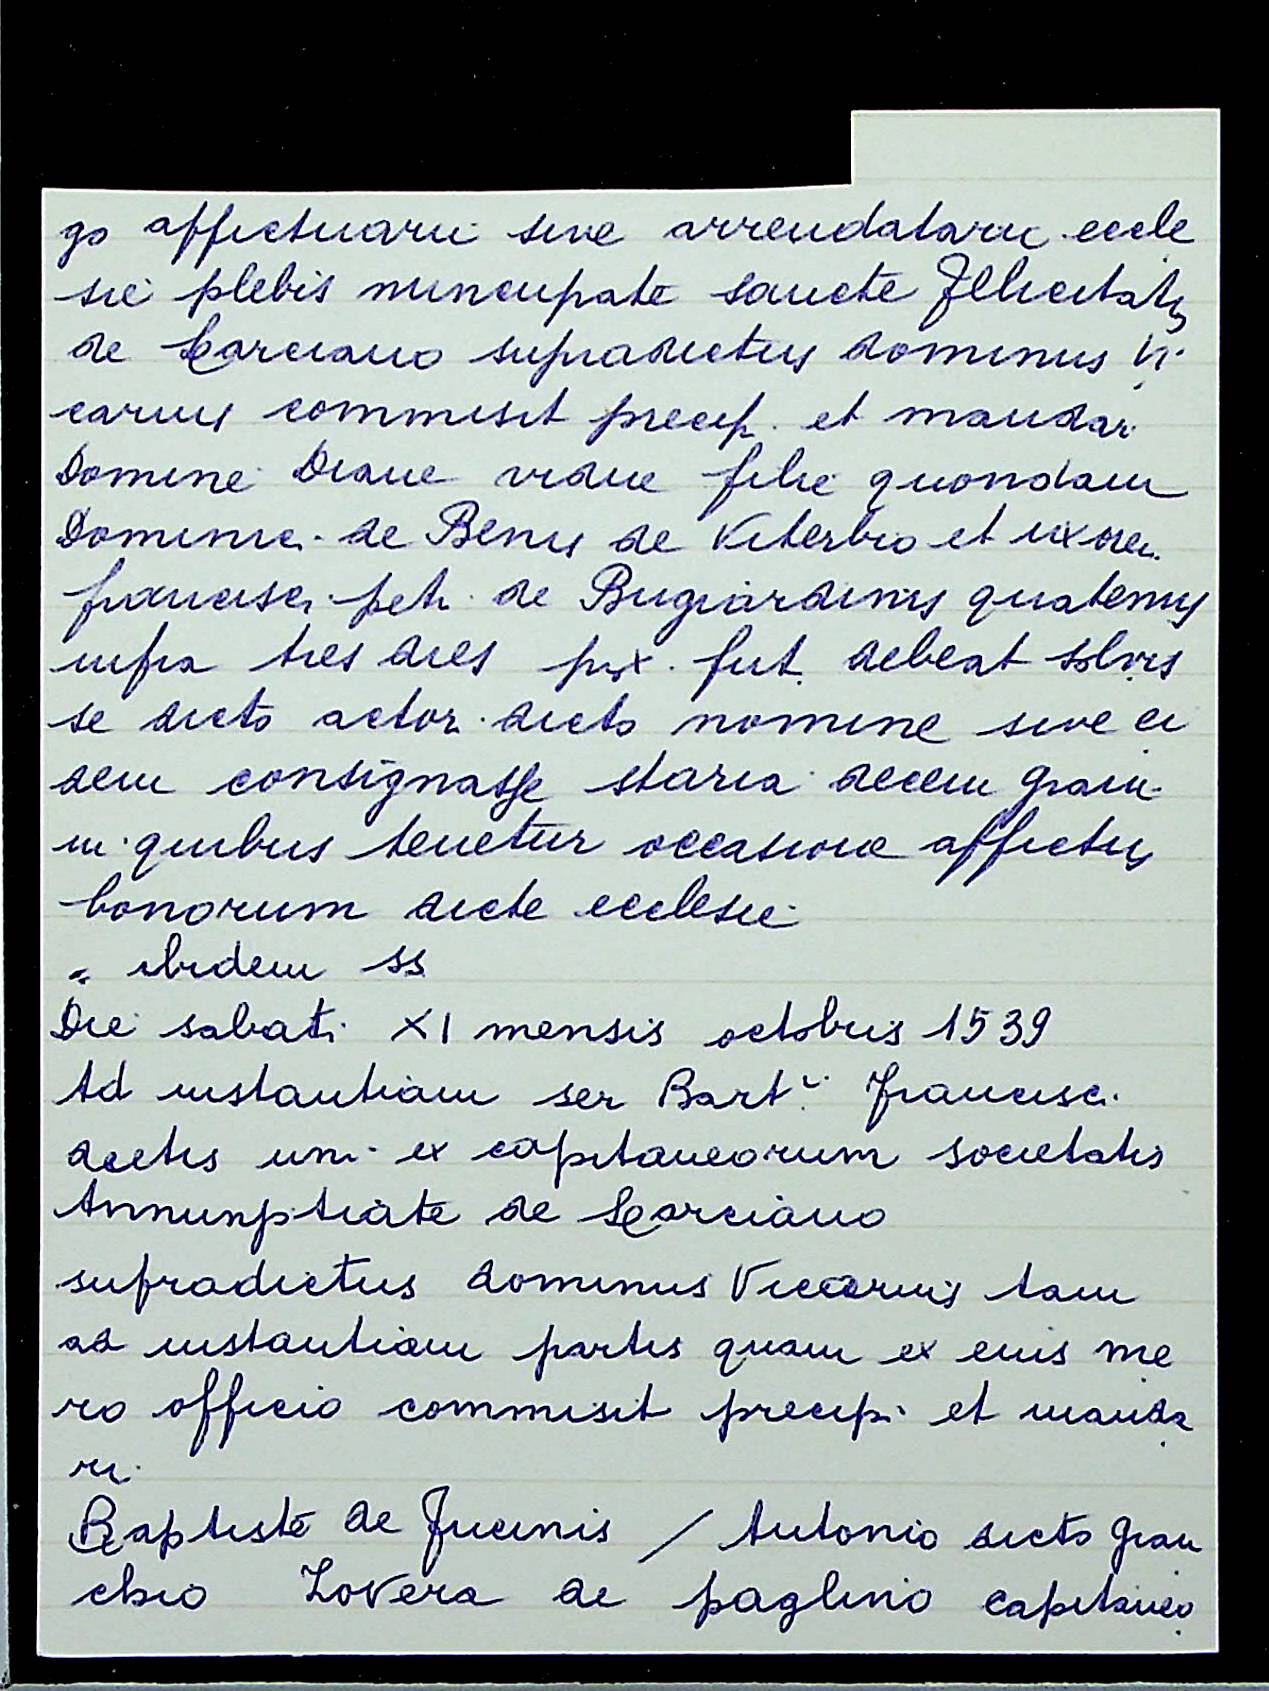 go affictuarii sive arrendatarii eccle
sie plebis nuncupate sancte Felicitatis
de Larciano supradictus dominus Vi
carius commisit precip. et mandari
Domine Diane vidue filie quondam
Dominici de Benis de Viterbio et uxori
francisci petri de Bugiardinis quatenus
infra tres dies prox. fut. debeat solvis
se dicto actori dicto nomine sive ei
dem consignasse staria decem grani
in quibus tenetur occasione affictus
bonorum dicte ecclesie
" ibidem ss
Die sabati XI mensis octobris 1539
Ad instantiam ser Bart.i Francisci
dectis uni ex capitaneorum societatis
Annumptiate de Larciano
supradictus dominus Vicarius tam
ad instantiam partis quam ex eius me
ro officio commisit precipi et manda
ri
Baptiste de Fucinis / Antonio dicto gran
chio Lovera de paglino capitaneo